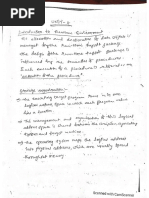 UNIT-5
Introduction to Runtime Environment
The allocation and deallocation of data objects is
managed by the Runtime Support package.
The design of the Runtime Support package is
influenced by the semantics of procedures.
Each execution of a procedure is referred as
activation of the procedure.
Storage organization:-
The executing target program runs in its own
logical address space in which each program value
has a location.
The management and organization of this logical
address space is shared between the compiler, operating
system and target machine.
The operating system maps the logical address
into physical address, which are usually spread
throughout memory.
Scanned with CamScanner